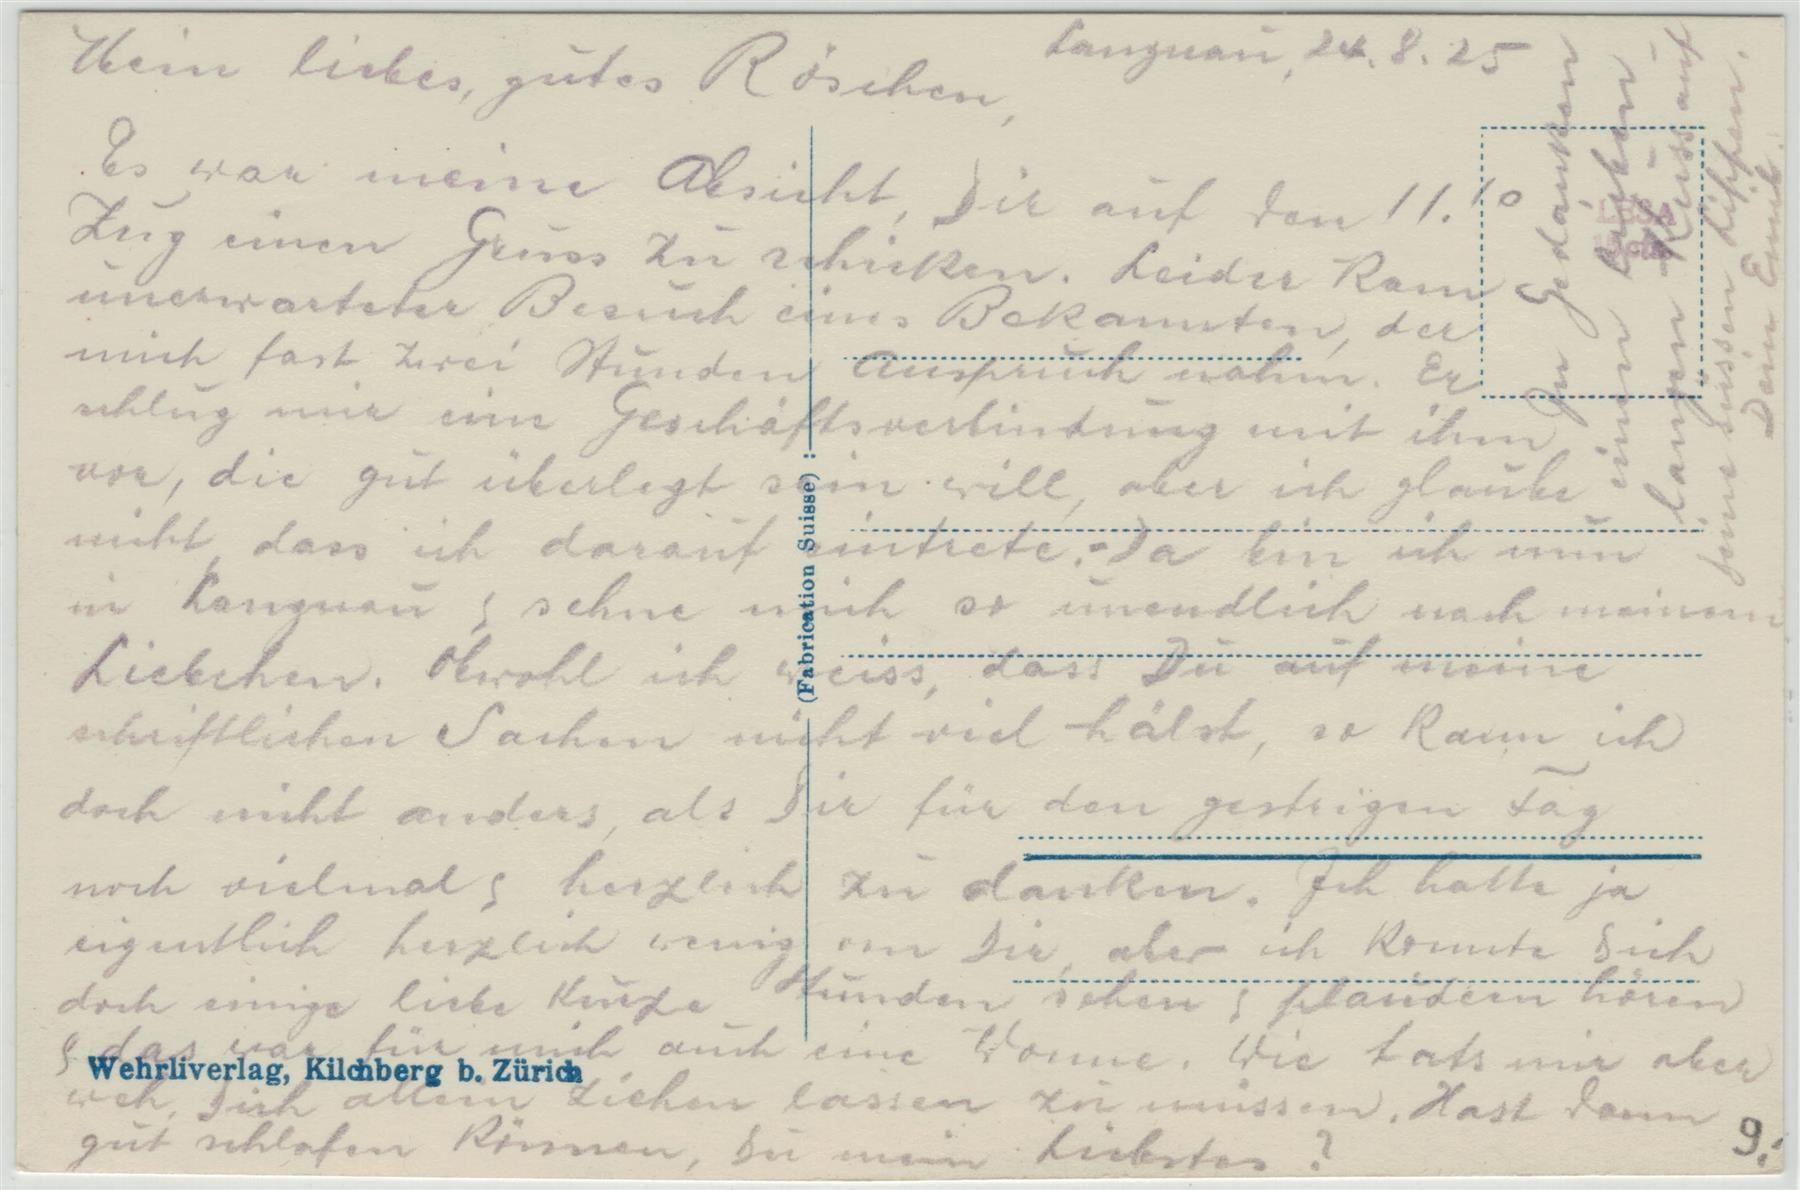 Langnau, 24. 8. 25
Mein liebes, gutes Röschen,
Es war meine Absicht, Dir auf den 11.10
Zug einen Gruss zu schicken. Leider kam
unerwarteter Besuch eines Bekannten, der
mich fast zwei Stunden Anspruch nahm. Er
schlug mir eine Geschäftsverbindung mit ihm
vor, die gut überlegt sein will, aber ich glaube
nicht, dass ich darauf eintrete. Da bin ich nun
in Langnau & sehne mich so unendlich nach meinem
Liebchen. Obwohl ich weiss, dass Du auf meine
schriftlichen Sachen nicht viel hälst, so kann ich
doch nicht anders, als Dir für den gestrigen Tag
noch vielmal & herzlich zu danken. Ich hatte ja
eigentlich herzlich wenig von Dir, aber ich konnte Dich
doch einige liebe kurze Stunden sehen & plaudern hören
& das war für mich auch eine Wonne. Wie tats mir aber
weh, Dich allein ziehen lassen zu müssen. Hast Dann
gut schlafen können, Du mein Liebstes?
In Gedanken
einen lieben
langen Kuss auf
süssen Lippen.
Dein Emil.
(Fabrication Suisse)
Wehrliverlag, Kilchberg b. Zürich
9.